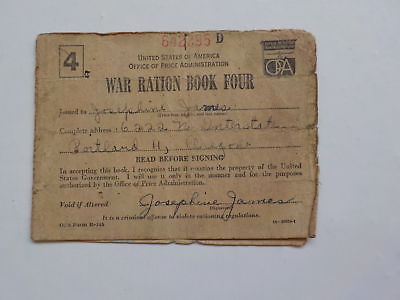 D
4
UNITED STATES OF AMERICA
OFFICE OF PRICE ADMINISTRATION
OPA
WAR RATION BOOK FOUR
Issued to Josephine James
Complete address 6222 N.
Portland 11, Oregon
READ BEFORE SIGNING
In accepting this book, I recognize that it remains the property of the United
States Government. I will use it only in the manner and for the purposes
authorized by the Office of Price Administration.
Void if Altered Josephine James
(Signature)
It is a criminal offense to violate rationing regulations.
OPA Form R-145